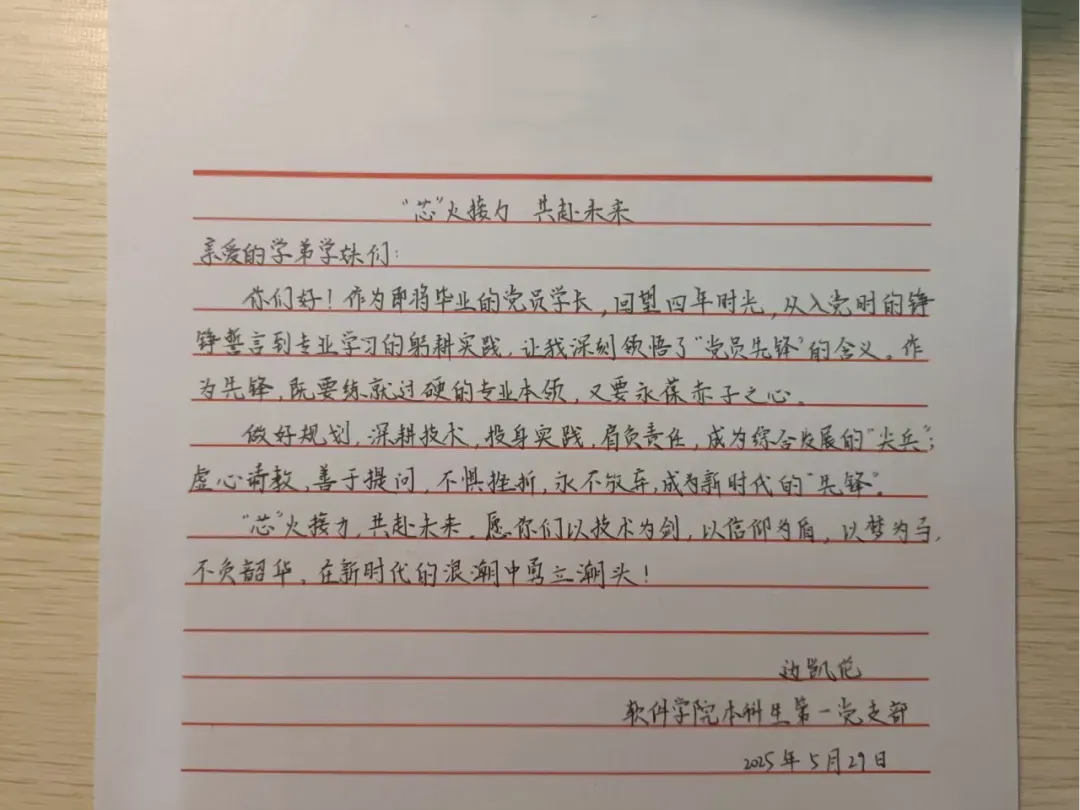 “芯”火接力 共赴未来
亲爱的学弟学妹们：
你们好！作为即将毕业的党员学长，回望四年时光，从入党时的铮
铮誓言到专业学习的躬耕实践，让我深刻领悟了“党员先锋”的含义。作
为先锋，既要练就过硬的专业本领，又要永葆赤子之心。
做好规划，深耕技术，投身实践，肩负责任，成为综合发展的“尖兵”；
虚心请教，善于提问，不惧挫折，永不放弃，成为新时代的“先锋”。
“芯”火接力，共赴未来。愿你们以技术为剑，以信仰为盾，以梦为马，
不负韶华，在新时代的浪潮中勇立潮头！
边凯
软件学院本科生第一党支部
2025年5月29日